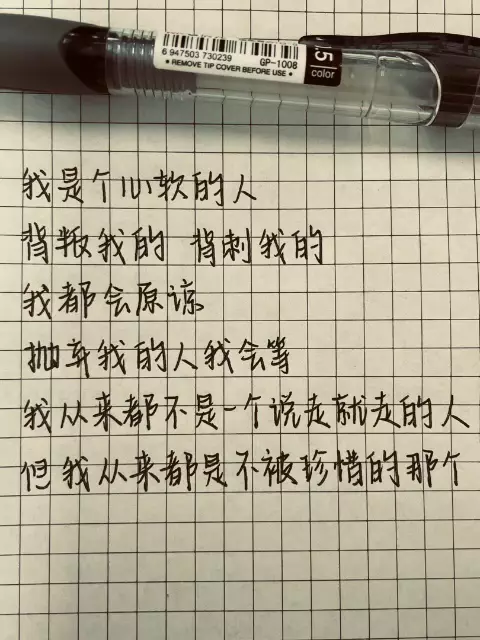 .5
color
6 947503 730239
GP-1008
• REMOVE TIP COVER BEFORE USE •
我是个心软的人
背叛我的 背刺我的
我都会原谅
抛弃我的人我会等
我从来都不是一个说走就走的人
但我从来都是不被珍惜的那个